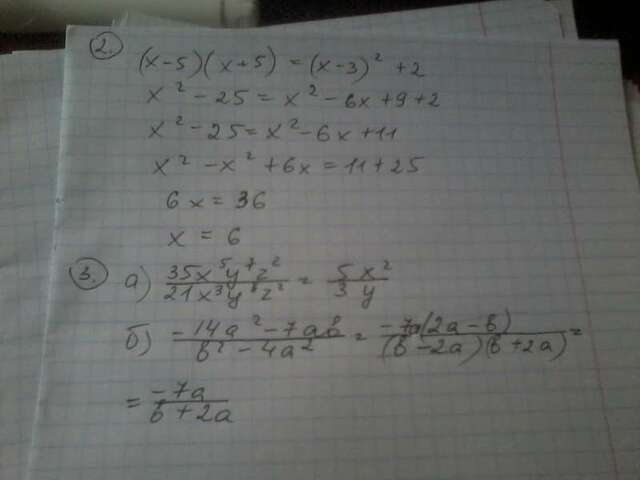 2. (x-5)(x+5) = (x-3)² + 2
x² - 25 = x² - 6x + 9 + 2
x² - 25 = x² - 6x + 11
x² - x² + 6x = 11 + 25
6x = 36
x = 6
3. а) 35x⁵y⁷z² / 21x³y⁸z² = 5x² / 3y
б) -14a² - 7ab / b² - 4a² = -7a(2a - b) / (b - 2a)(b + 2a) =
= -7a / b + 2a